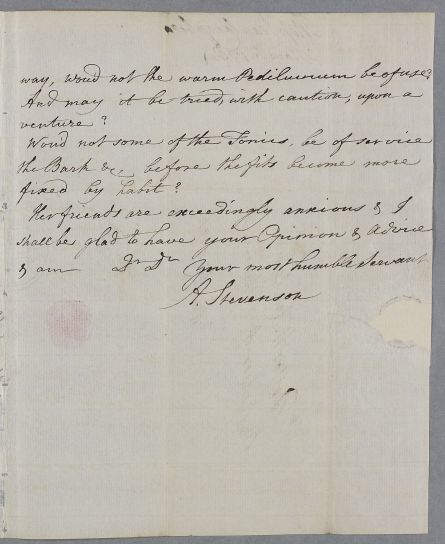 way, woud not the warm Pediluvium be of use?
And may it be tried, with caution, upon a
venture?
Woud not some of the Tonics, be of service
the Bark &c, before the fits become more
fixed by habit?
Her friends are exceedingly anxious & I
shall be glad to have your Opinion & Advice
& am Dr Dr your most humble Servant
A. Stevenson